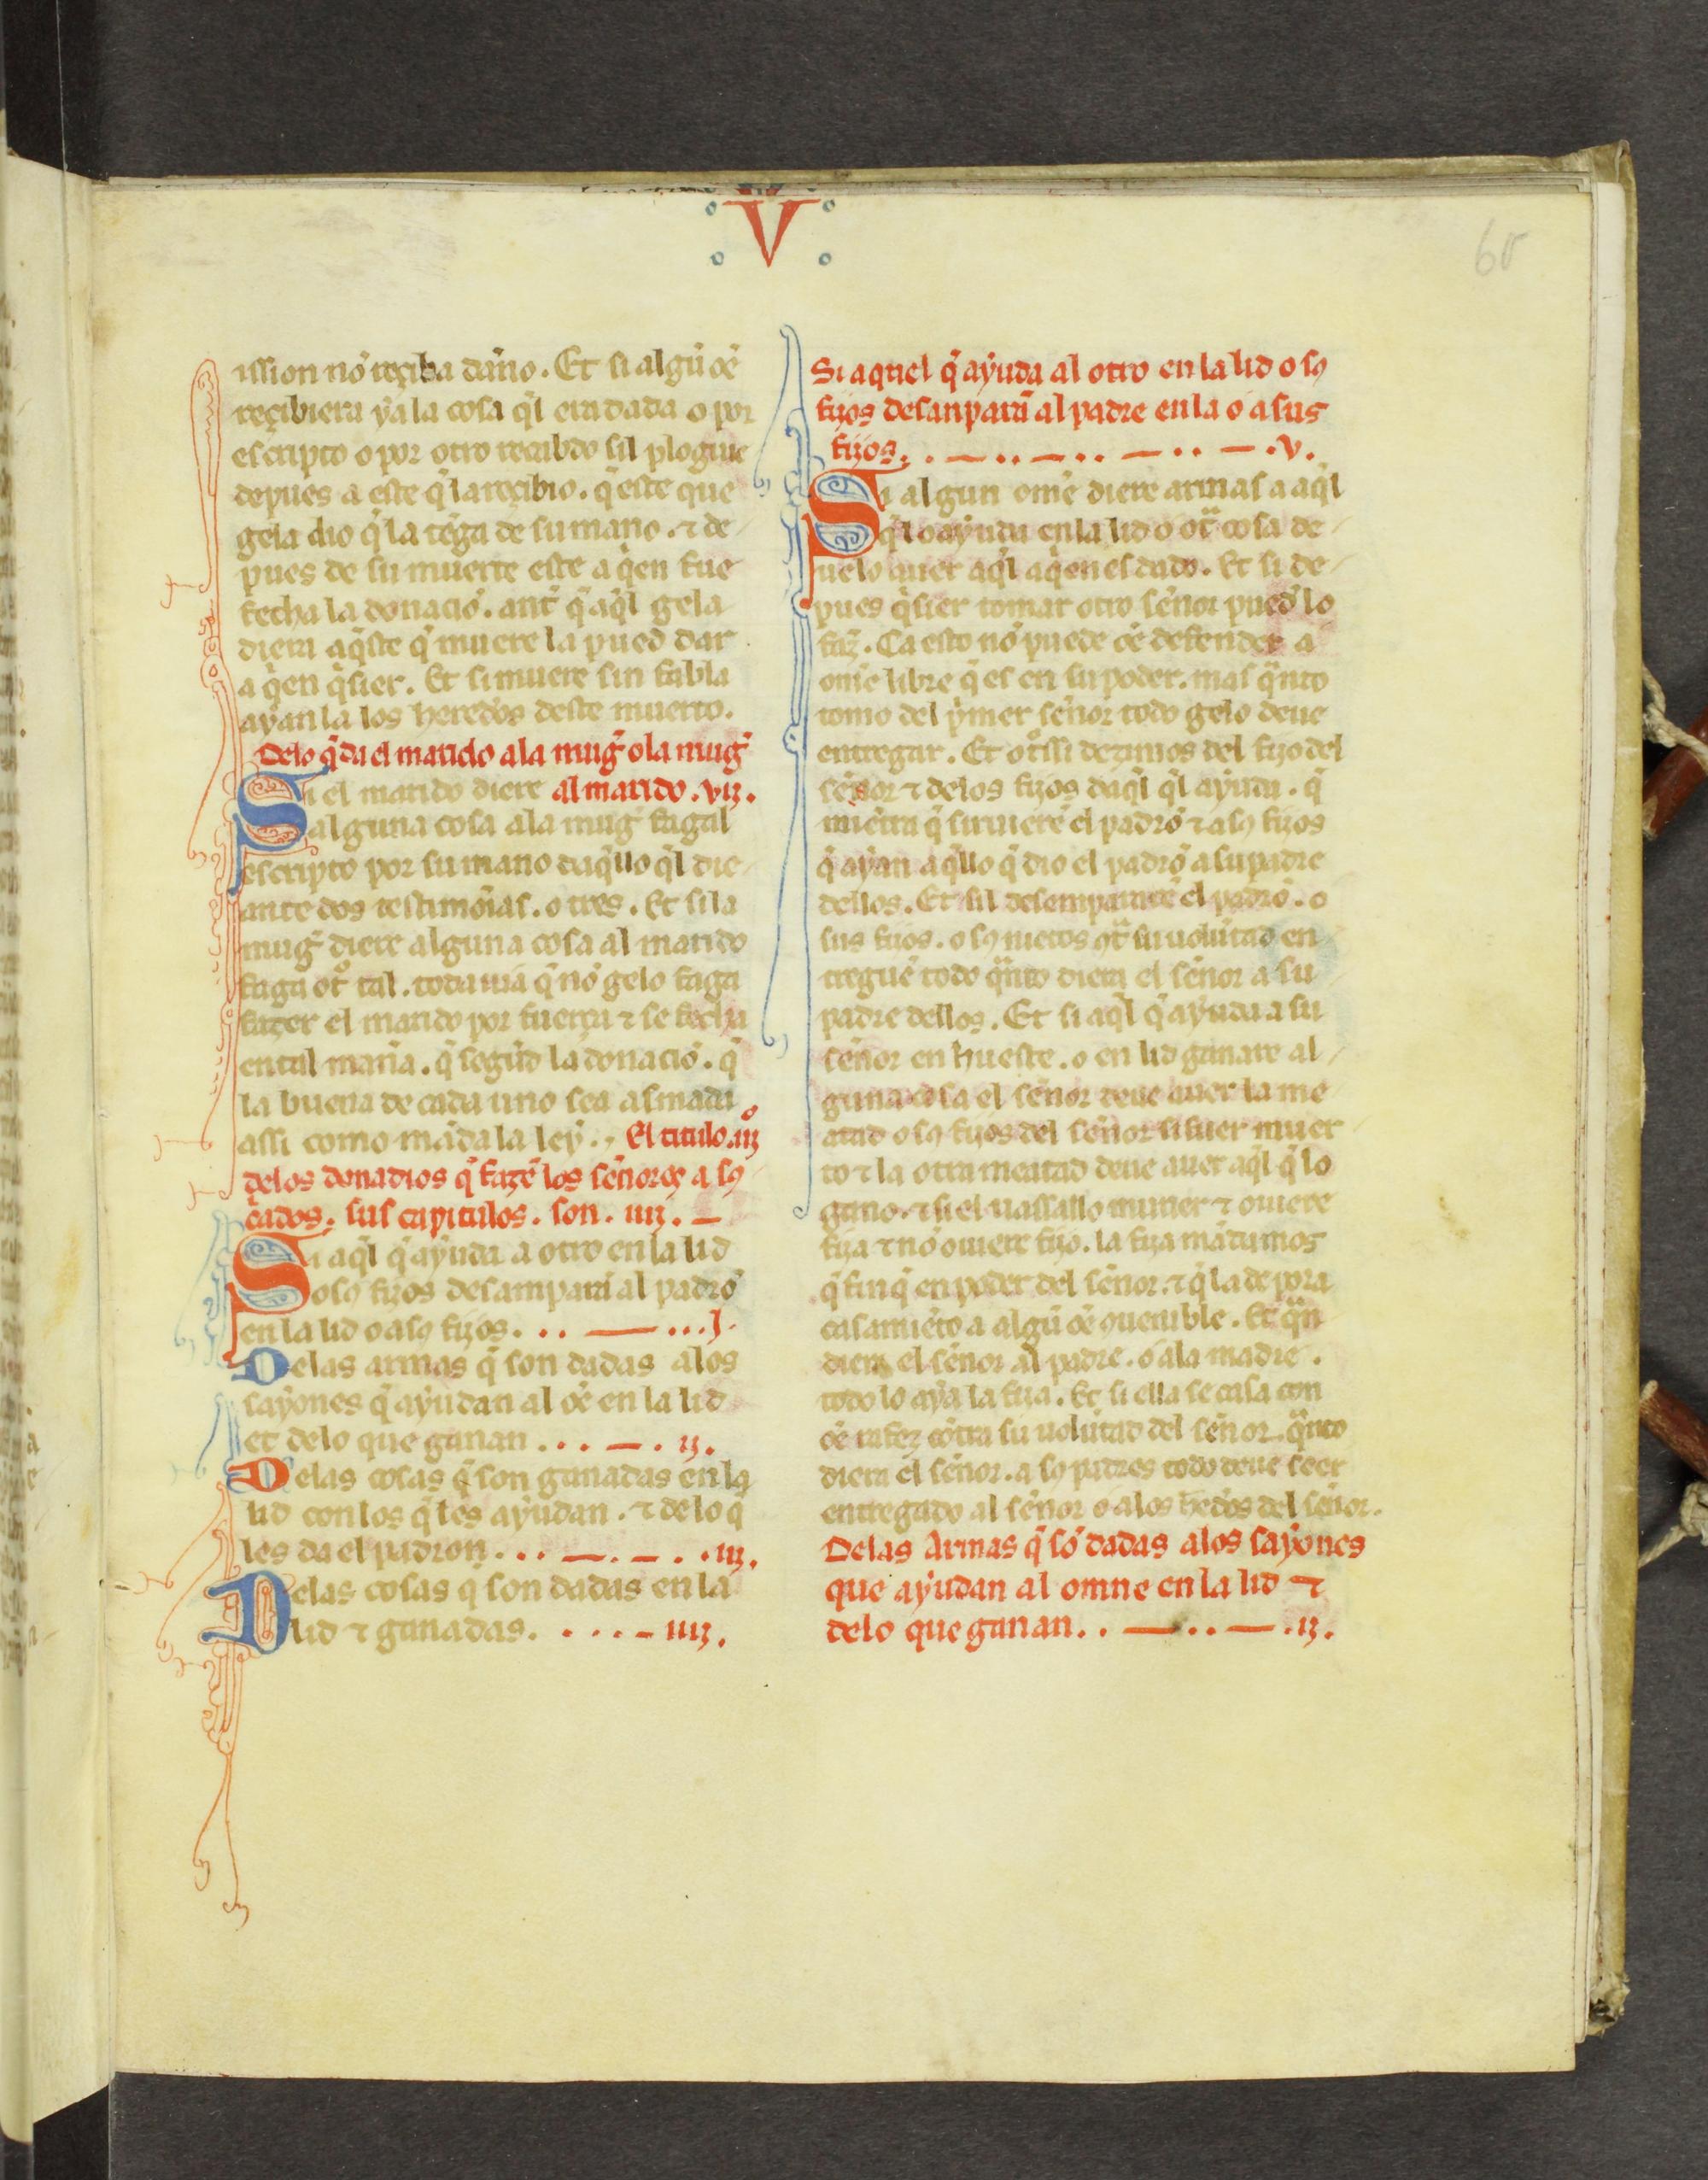 V
60
ussion nõ reçiba daño. Et si algũ oẽ
reçibiera ya la cosa q̃l era dada o por
escripto o por otro recabdo sil plogiue
depues a este q̃ la reçibio. q̃ este que
gela dio q̃ la tẽga de su mano. ⁊ de-
pues de su muerte este a q̃en fue
fecha la donaciõ. ant̃ q̃ aq̃l gela
diera aq̃ste q̃ muere la pued dar
a q̃en q̃sier. Et si muere sin fabla
ayan la los hereds̃ deste muerto.
Delo q̃ da el marido ala mug̃ o la mug̃
al marido. vij.
Si el marido diere
alguna cosa ala mug̃ fagal
escripto por su mano daq̃llo q̃l die-
ante dos testimõias. o tres. Et si la
mug̃ diere alguna cosa al marido
faga ot̃ tal. toda uia q̃ nõ gelo faga
fazer el marido por fuerça ⁊ se fecha
en tal mañia. q̃ segũd la donaciõ. q̃
la buena de cada uno sea asmada
assi como mãda la ley.
El titulo .iijº
delos donadios q̃ fazẽ los señores a sꝯ
cados. sus capitulos. son. iiij. —
Si aq̃l q̃ ayuda a otro en la lid
o sꝯ fijos desamparã al padrõ
en la lid o a sꝯ fijos. . . — . . . j.
Delas armas q̃ son dadas alos
sayones q̃ ayudan al oẽ en la lid
et delo que ganan . . . — . ij.
Delas cosas q̃ son ganadas en la
lid con los q̃ les ayudan. ⁊ de lo q̃
les da el padron. . . — . — . . iij.
Delas cosas q̃ son dadas en la
lid ⁊ ganadas. . . . — iiij.
Si aquel q̃ ayuda al otro en la lid o sꝯ
fijos desanparã al padre en la o a sus
fijos. . — . . — . . — . . — . v.
Si algun ome diere armas a aq̃l
q̃ lo ayuda en la lid o ot̃ cosa de-
uelo auer aq̃l a q̃en es dado. Et si de-
pues q̃sier tomar otro señor puedlo
faz̃. Ca esto nõ puede oẽ defender a
ome libre q̃ es en su poder. mas q̃nto
tomo del p̃mer señor todo gelo deue
entregar. Et otr̃ssi dezimos del fijo del
señor ⁊ delos fijos daq̃l q̃l ayuda. q̃
miẽtra q̃ siruierẽ el padrõ ⁊ a sꝯ fijos
q̃ ayan aq̃llo q̃ dio el padrõ a su padre
dellos. Et sil desempararẽ el padrõ. o
sus fijos. o sꝯ nietos ꝯt̃ su uolũtad en
treguẽ todo q̃nto diera el señor a su
padre dellos. Et si aq̃l q̃ ayuda a su
señor en hueste. o en lid ganare al-
guna cosa el señor deue auer la me-
atad o sꝯ fijos del señor si fuer muer
to ⁊ la otra meatad deue auer aq̃l q̃ lo
gano. ⁊ si el uassallo murier ⁊ ouiere
fija ⁊ nõ ouiere fijo. la fija mãdamos
q̃ finq̃ en poder del señor. ⁊ q̃ la de pora
casamiẽto a algũ oẽ ꝯuenible. Et q̃n
diera el señor al padre. o ala madre.
todo lo aya la fija. Et si ella se casa con
oẽ rafez cõtra su uolũtad del señor. q̃nto
diera el señor. a sꝯ padres todo deue seer
entregado al señor o alos heds̃ del señor.
Delas Armas q̃ sõ dadas alos sayones
que ayudan al omne en la lid ⁊
delo que ganan. . — . . — . ij.